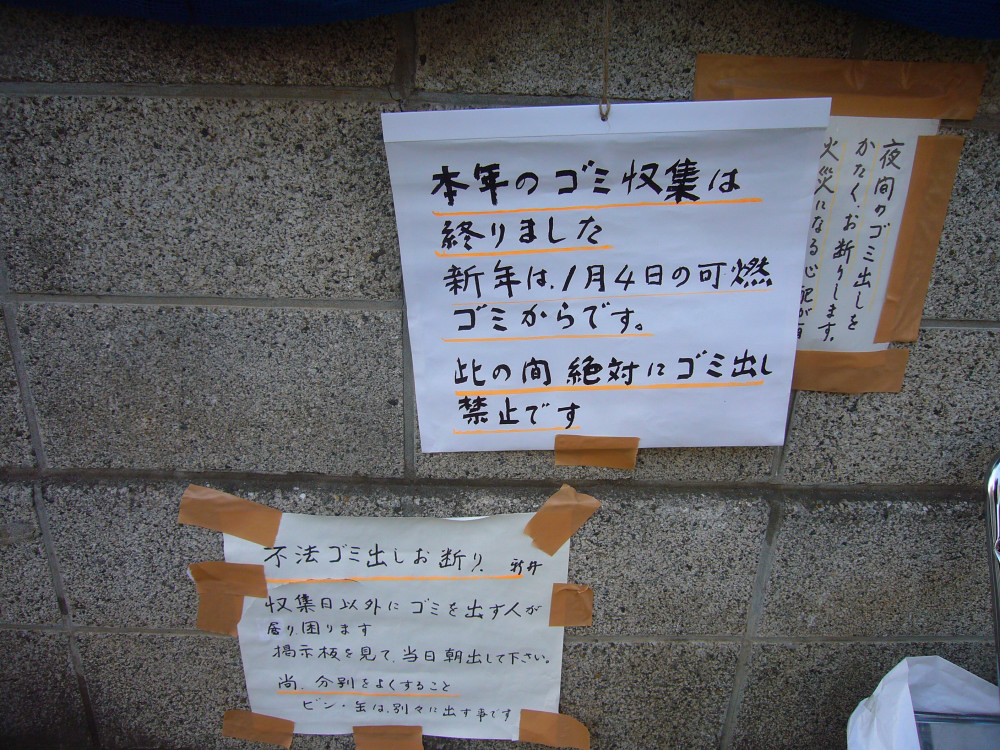 本年のゴミ収集は
終りました
新年は、1月4日の可燃
ゴミからです。
此の間絶対にゴミ出し
禁止です
夜間のゴミ出しを
かたくお断りします。
火災になる心配が有
不法ゴミ出しお断り 新井
収集日以外にゴミを出す人が
居り、困ります
掲示板を見て、当日朝出して下さい。
尚、分別をよくすること
ビン・缶は、別々に出す事です